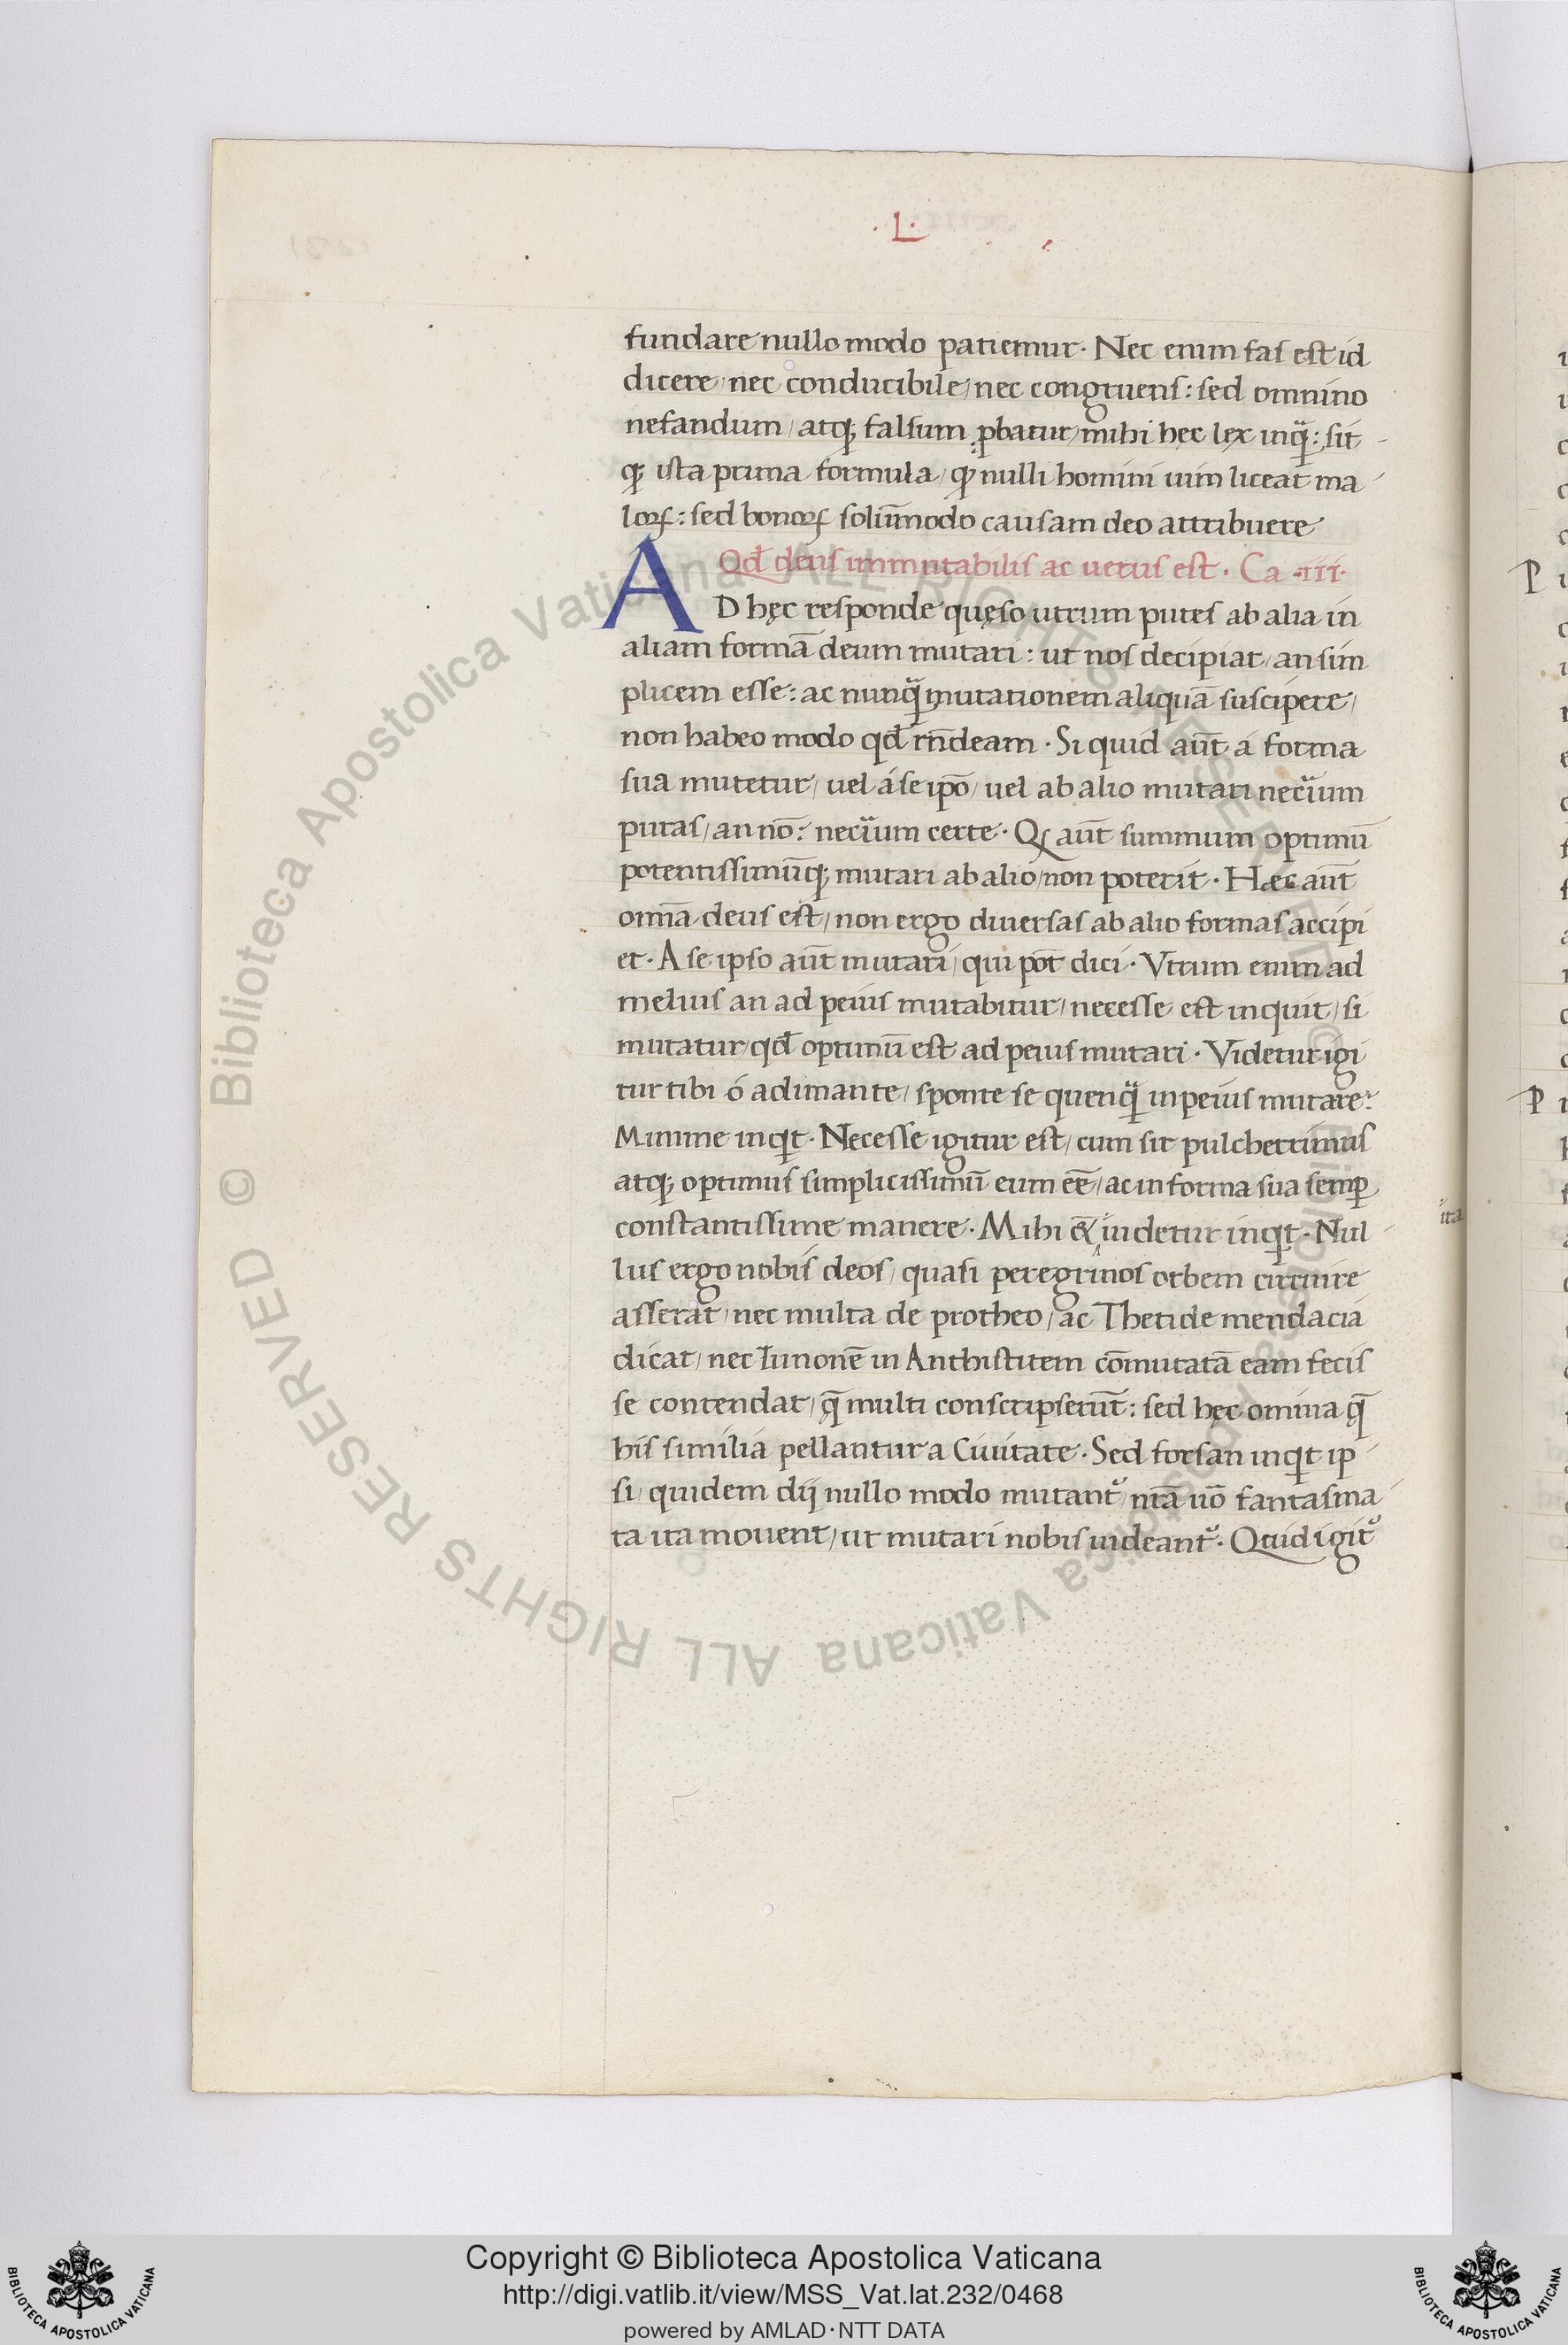 ·L·
fundare nullo modo patiemur. Nec enim fas est id
dicere/ nec conducibile/ nec congruens: sed omnino
nefandum/ atqꝫ falsum ꝓbatur/ mihi hec lex inqᷓ: sit
qꝫ ista prima formula/ ꝙ nulli homini uim liceat ma
loꝝ: sed bonoꝝ solūmodo causam deo attribuere
Qđ deus immutabilis ac uerus est. Ca .III.
AD hęc responde quęso utrum putes ab alia in
aliam formā deum mutari: ut nos decipiat/ an sim
plicem esse: ac nunqᷓ mutationem aliquā suscipere/
non habeo modo qđ rn̄deam. Si quid aūt á forma
sua mutetur/ uel á se ipō/ uel ab alio mutari neciᷓum
putas/ an nō? neciᷓum certe. Qꝫ aūt summum optimū
potentissimūqꝫ mutari ab alio/ non poterit. Hæc aūt
omīa deus est/ non ergo diuersas ab alio formas accipi
et. A se ipso aūt mutari/ qui pōt dici. Vtrum enim ad
melius an ad peius mutabitur/ necesse est inquit/ si
mutatur/ qđ optimū est ad peius mutari. Videtur igi
tur tibi ó adimante/ sponte se quenqᷓ in peius mutare?
Minime inqͥt. Necesse igitur est/ cum sit pulcherrimus
atqꝫ optimus simplicissimū eum eē/ ac in forma sua semꝑ
constantissime manere. Mihi & uidetur inqͥt. Nul
ita
lus ergo nobis deos/ quasi peregrinos orbem circuire
asserat/ nec multa de protheo/ ac Thetide mendacia
dicat/ nec Iunonē in Anthistitem cōmutatā eam fecis
se contendat/ q̄ multi conscripserūt: sed hęc omnia q̄
bis similia pellantur a Ciuitate. Sed forsan inqͥt ip
si/ quidem dij nullo modo mutantᷣ/ nr̄a uō fantasma
ta ita mouent/ ut mutari nobis uideantᷣ. Quid igitᷣ
Copyright © Biblioteca Apostolica Vaticana
http://digi.vatlib.it/view/MSS_Vat.lat.232/0468
powered by AMLAD·NTT DATA
BIBLIOTECA APOSTOLICA VATICANA
BIBLIOTECA APOSTOLICA VATICANA
© Biblioteca Apostolica Vaticana ALL RIGHTS RESERVED © Biblioteca Apostolica Vaticana ALL RIGHTS RESERVED